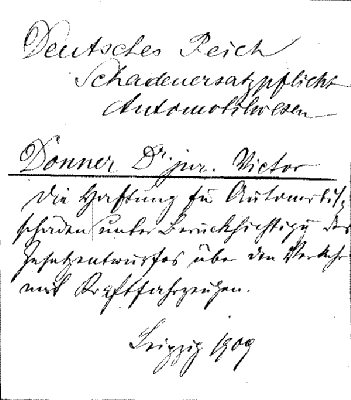 Deutsches Reich
Schadenersatzpflicht
Automobilwesen
Donner Dr jur. Victor
Die Haftung für Automobil-
schäden unter Berücksichtigg des
Gesetzentwurfes über den Verkehr
mit Kraftfahrzeugen.
Leipzig 1909